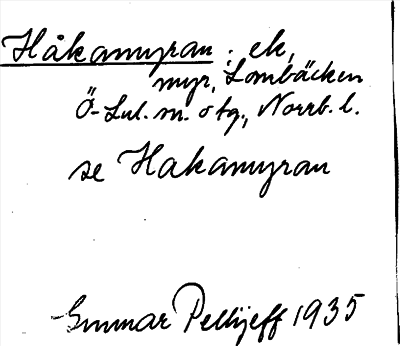 Håkamyran : ek,
myr, Lombäcken
Ö-Lul. m. o tg., Norrb. l.
se Hakamyran
Gunnar Pellijeff 1935